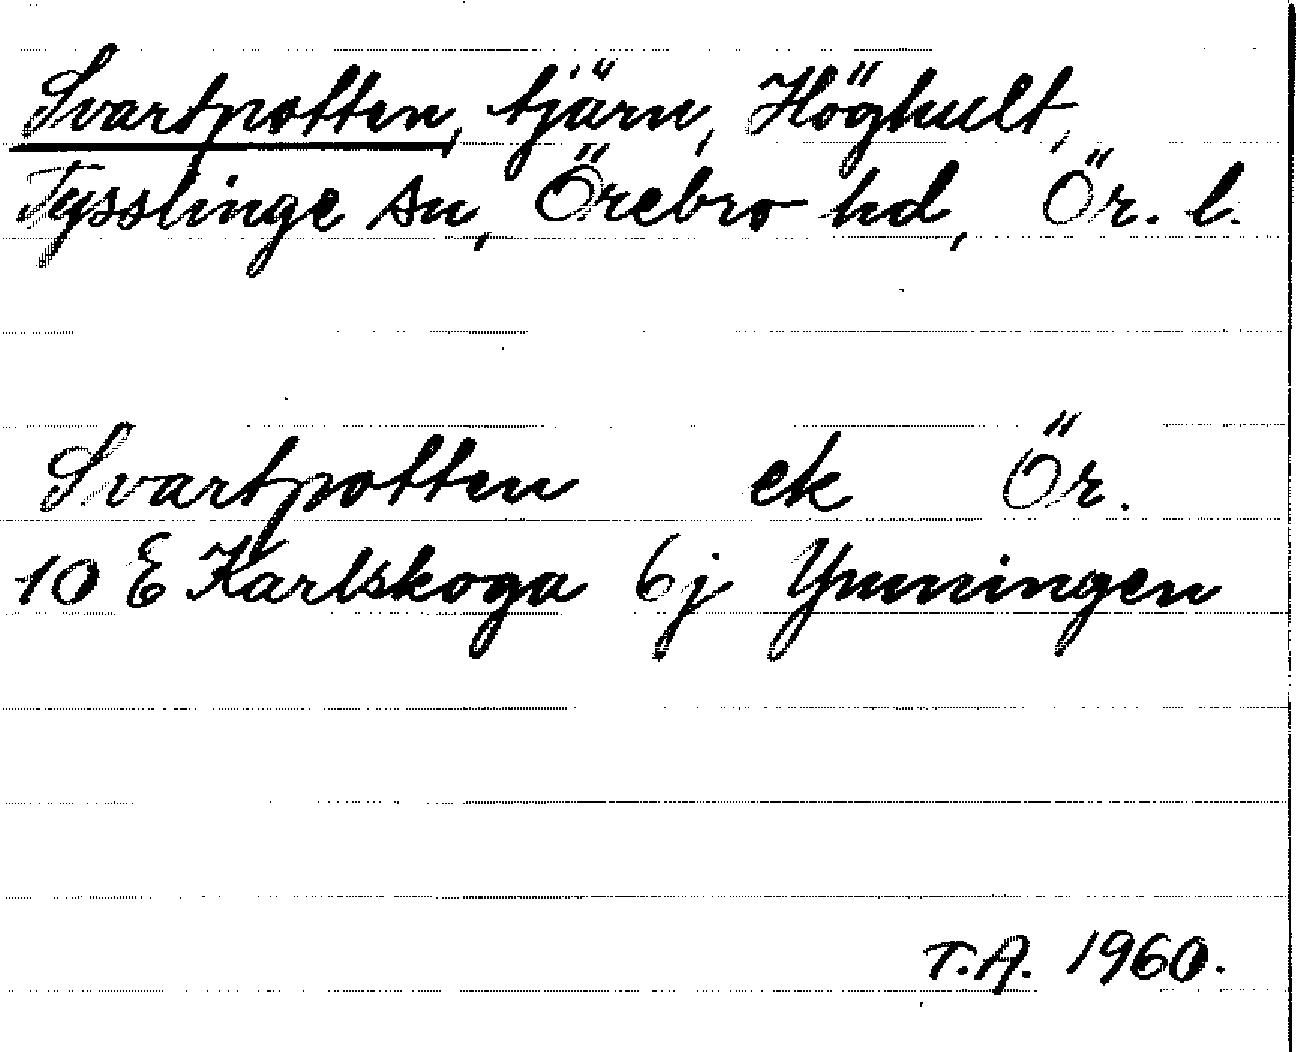 Svartpotten, tjärn, Höghult,
Tysslinge sn, Örebro hd, Ör. l.
Svartpotten ek Ör.
10 E Karlskoga 6j Ymningen
T.A. 1960.